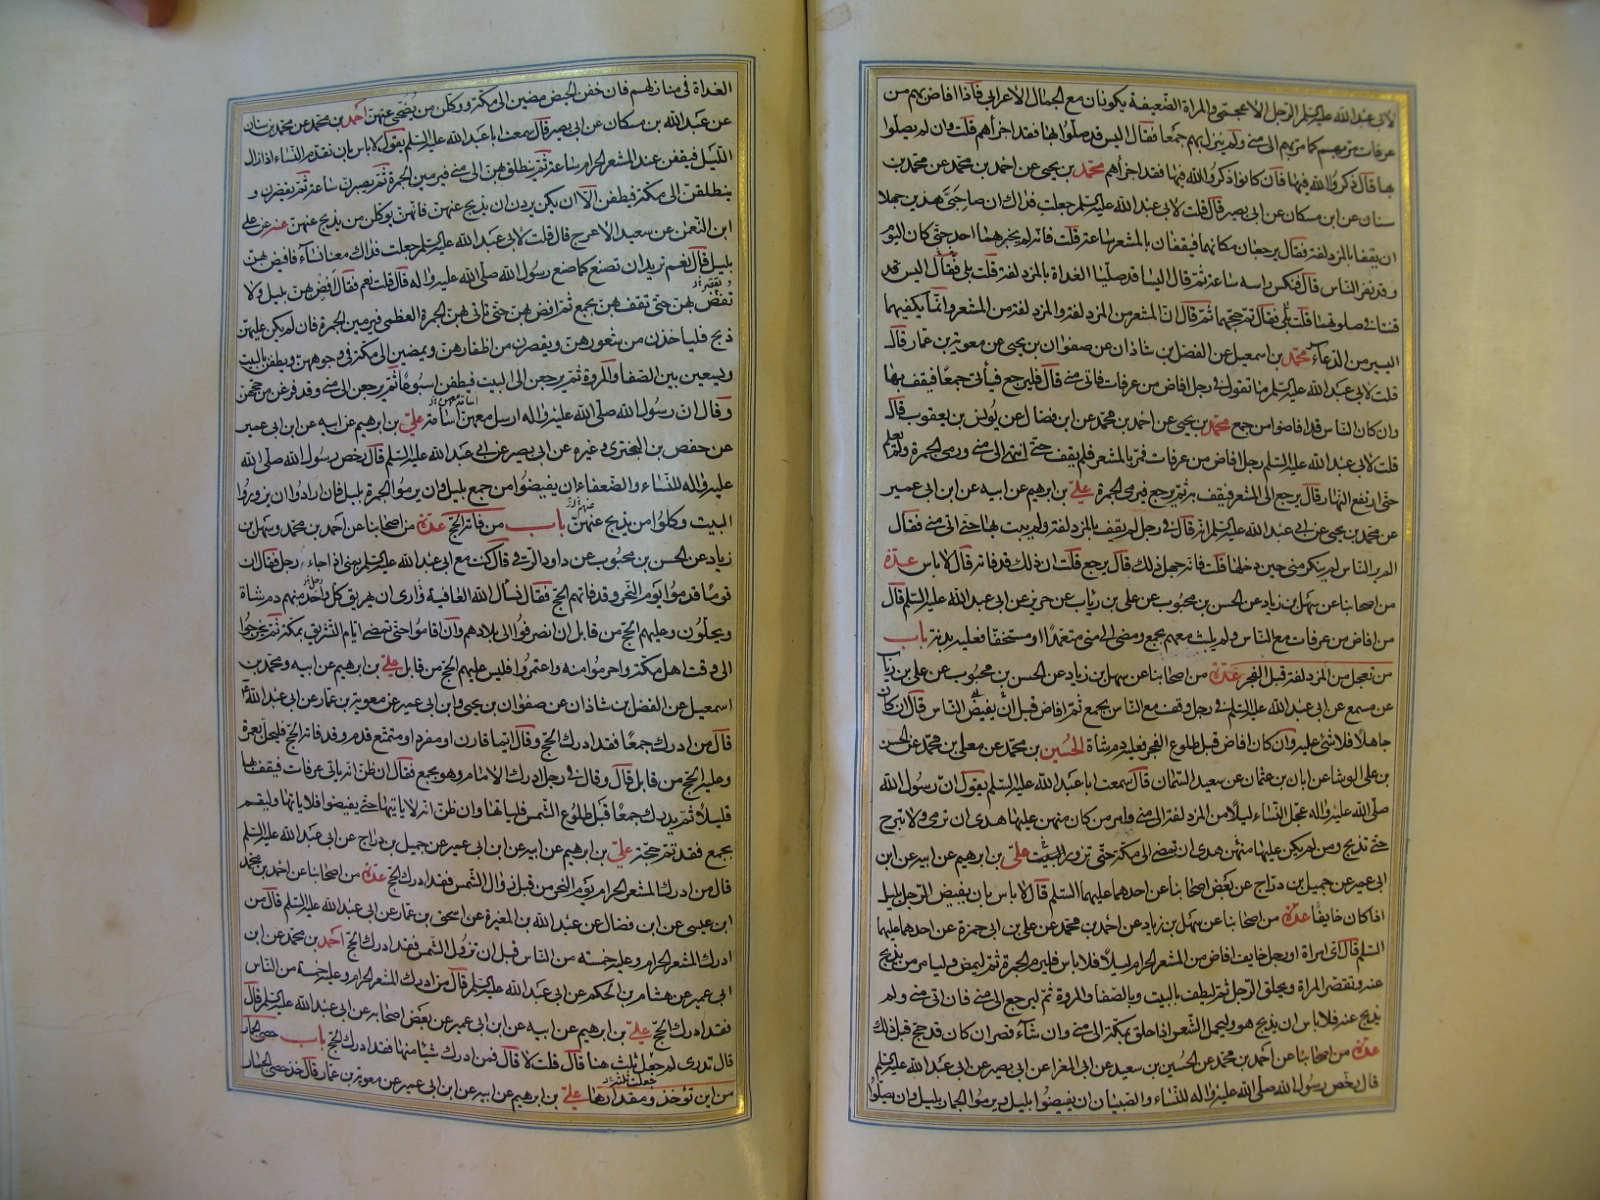 لابي عبد الله عليه السلم الرجل الاعجمي والمراة الضعيفة يكونان مع الجمال الاعرابي فاذا افاض بهم من
عرفات مر بهم كما مر بهم الى منى ولم ينزل بهم جمعا فقال اليس قد صلوا بها فقد اجزأهم قلت وان لم يصلوا
بها قال ذكروا الله فيها فان كانوا ذكروا الله فيها فقد اجزأهم محمد بن يحيى عن احمد بن محمد عن محمد بن
سنان عن ابن مسكان عن ابي بصير قال قلت لابي عبد الله عليه السلم جعلت فداك ان صاحبي هذين جهلا
ان يقفا بالمزدلفة فقال يرجعان مكانهما فيقفان بالمشعر ساعة قلت فانه لم يخبرهما احد حتى كان اليوم
وقد نفر الناس قال فنكس راسه ساعة ثم قال اليسا قد صليا الغداة بالمزدلفة قلت بلى فقال اليس قد
قنتا في صلوتهما قلت بلى فقال تم حجهما ثم قال ان المشعر من المزدلفة والمزدلفة من المشعر وانما يكفيهما
اليسير من الدعاء محمد بن اسمعيل عن الفضل بن شاذان عن صفوان بن يحيى عن معوية بن عمار قال
قلت لابي عبد الله عليه السلم ما تقول في رجل افاض من عرفات فاتى منى قال فليرجع فياتي جمعا فيقف بها
وان كان الناس قد افاضوا من جمع محمد بن يحيى عن احمد بن محمد عن ابن فضال عن يونس بن يعقوب قال
قلت لابي عبد الله عليه السلم رجل افاض من عرفات فمر بالمشعر فلم يقف حتى انتهى الى منى ورمى الجمرة ولم يعلم
حتى ارتفع النهار قال يرجع الى المشعر فيقف به ثم يرجع فيرمي الجمرة علي بن ابرهيم عن ابيه عن ابن ابي عمير
عن محمد بن يحيى عن ابي عبد الله عليه السلم انه قال في رجل لم يقف بالمزدلفة ولم يبت بها حتى اتى منى فقال
الم ير الناس لم ينكر منى حين دخلها قلت فانه جهل ذلك قال يرجع قلت ان ذلك قد فاته قال لا باس عدة
من اصحابنا عن سهل بن زياد عن الحسن بن محبوب عن علي بن رئاب عن حريز عن ابي عبد الله عليه السلم قال
من افاض من عرفات مع الناس ولم يلبث معهم بجمع ومضى الى منى متعمدا او مستخفا فعليه بدنة باب
من تعجل من المزدلفة قبل الفجر عدة من اصحابنا عن سهل بن زياد عن الحسن بن محبوب عن علي بن رئاب
عن مسمع عن ابي عبد الله عليه السلم في رجل وقف مع الناس بجمع ثم افاض قبل ان يفيض الناس قال ان كان
جاهلا فلا شئ عليه وان كان افاض قبل طلوع الفجر فعليه دم شاة الحسين بن محمد عن معلى بن محمد عن الحسن
بن علي الوشا عن ابان بن عثمان عن سعيد السمان قال سمعت ابا عبد الله عليه السلم يقول ان رسول الله
صلى الله عليه واله عجل النساء ليلا من المزدلفة الى منى وامر من كان منهن عليها هدى ان ترمى ولا تبرح
حتى تذبح ومن لم يكن عليها منهن هدى ان تمضي الى مكة حتى تزور البيت علي بن ابرهيم عن ابيه عن ابن
ابي عمير عن جميل بن دراج عن بعض اصحابنا عن احدهما عليهما السلم قال لا باس بان يفيض الرجل بليل
اذا كان خايفا عدة من اصحابنا عن سهل بن زياد عن احمد بن محمد عن علي بن ابي حمزة عن احدهما عليهما
السلم قال اي امراة او رجل خايف افاض من المشعر الحرام ليلا فلا باس فليرم الجمرة ثم ليمض وليامر من يذبح
عنه وتقصر المراة ويحلق الرجل ثم ليطف بالبيت وبالصفا والمروة ثم ليرجع الى منى فان اتى منى ولم
يذبح عنه فلا باس ان يذبح هو وليحمل الشعر اذا حلق بمكة الى منى وان شاء قصر ان كان قد حج قبل ذلك
عدة من اصحابنا عن احمد بن محمد عن الحسين بن سعيد عن ابي المغرا عن ابي بصير عن ابي عبد الله عليه السلم
قال رخص رسول الله صلى الله عليه واله للنساء والصبيان ان يفيضوا بليل ويرموا الجمار بليل وان يصلوا
الغداة في منازلهم فان خفن الحيض مضين الى مكة ووكلن من يضحي عنهن احمد بن محمد عن محمد بن سنان
عن عبد الله بن مسكان عن ابي بصير قال سمعت ابا عبد الله عليه السلم يقول لا باس بان تقدم النساء اذا زال
الليل فيقفن عند المشعر الحرام ساعة ثم ينطلق بهن الى منى فيرمين الجمرة ثم يصبرن ساعة ثم يقصرن و
ينطلقن الى مكة فيطفن الا ان يكن يردن ان يذبح عنهن فانهن يوكلن من يذبح عنهن عنه عن علي
ابن النعمن عن سعيد الاعرج قال قلت لابي عبد الله عليه السلم جعلت فداك معنا نساء فافيض بهن
بليل قال نعم تريد ان تصنع كما صنع رسول الله صلى الله عليه واله قال قلت نعم فقال افض بهن بليل ولا
تفض بهن حتى تقف بهن بجمع ثم افض بهن حتى تاتي بهن الجمرة العظمى فيرمين الجمرة فان لم يكن عليهن
ذبح فلياخذن من شعورهن ويقصرن من اظفارهن ويمضين الى مكة في وجوههن ويطفن بالبيت
ويسعين بين الصفا والمروة ثم يرجعن الى البيت فيطفن اسبوعا ثم يرجعن الى منى وقد فرغن من حجهن
وقال ان رسول الله صلى الله عليه واله ارسل معهن اسامة علي بن ابرهيم عن ابيه عن ابن ابي عمير
عن حفص بن البختري وغيره عن ابي بصير عن ابي عبد الله عليه السلم قال رخص رسول الله صلى الله
عليه واله للنساء والضعفاء ان يفيضوا من جمع بليل وان يرموا الجمرة بليل فان ارادوا ان يزوروا
البيت وكلوا من يذبح عنهن باب من فاته الحج عدة من اصحابنا عن احمد بن محمد وسهل بن
زياد عن الحسن بن محبوب عن داود الرقي قال كنت مع ابي عبد الله عليه السلم بمنى اذ جاء رجل فقال ان
قوما قدموا يوم النحر وقد فاتهم الحج فقال نسأل الله العافية وارى ان يهريق كل واحد منهم دم شاة
ويحلون وعليهم الحج من قابل ان انصرفوا الى بلادهم وان اقاموا حتى تمضي ايام التشريق بمكة ثم يخرجوا
الى وقت اهل مكة واحرموا منه واعتمروا فليس عليهم الحج من قابل علي بن ابرهيم عن ابيه ومحمد بن
اسمعيل عن الفضل بن شاذان عن صفوان بن يحيى وابن ابي عمير عن معوية بن عمار عن ابي عبد الله
قال من ادرك جمعا فقد ادرك الحج وقال ايما قارن او مفرد او متمتع قدم وقد فاته الحج فليحل بعمرة
وعليه الحج من قابل قال وقال في رجل ادرك الامام وهو بجمع فقال ان ظن انه ياتي عرفات فيقف بها
قليلا ثم يدرك جمعا قبل طلوع الشمس فلياتها وان ظن انه لا ياتيها حتى يفيضوا فلا ياتها وليقم
بجمع فقد تم حجه علي بن ابرهيم عن ابيه عن ابن ابي عمير عن جميل بن دراج عن ابي عبد الله عليه السلم
قال من ادرك المشعر الحرام يوم النحر من قبل زوال الشمس فقد ادرك الحج عدة من اصحابنا عن احمد بن محمد
ابن عيسى عن ابن فضال عن عبد الله بن المغيرة عن اسحق بن عمار عن ابي عبد الله عليه السلم قال من
ادرك المشعر الحرام وعليه خمسة من الناس قبل ان تزول الشمس فقد ادرك الحج احمد بن محمد عن ابن
ابي عمير عن هشام بن الحكم عن ابي عبد الله عليه السلم قال من ادرك المشعر الحرام وعليه خمسة من الناس
فقد ادرك الحج علي بن ابرهيم عن ابيه عن ابن ابي عمير عن بعض اصحابه عن ابي عبد الله عليه السلم قال
قال تدرى لم جعل ثلث هنا قال قلت لا قال فمن ادرك شيئا منها فقد ادرك الحج باب حصى الجمار
من اين تؤخذ ومقدارها علي بن ابرهيم عن ابيه عن ابن ابي عمير عن معوية بن عمار قال خذ حصى الجمار